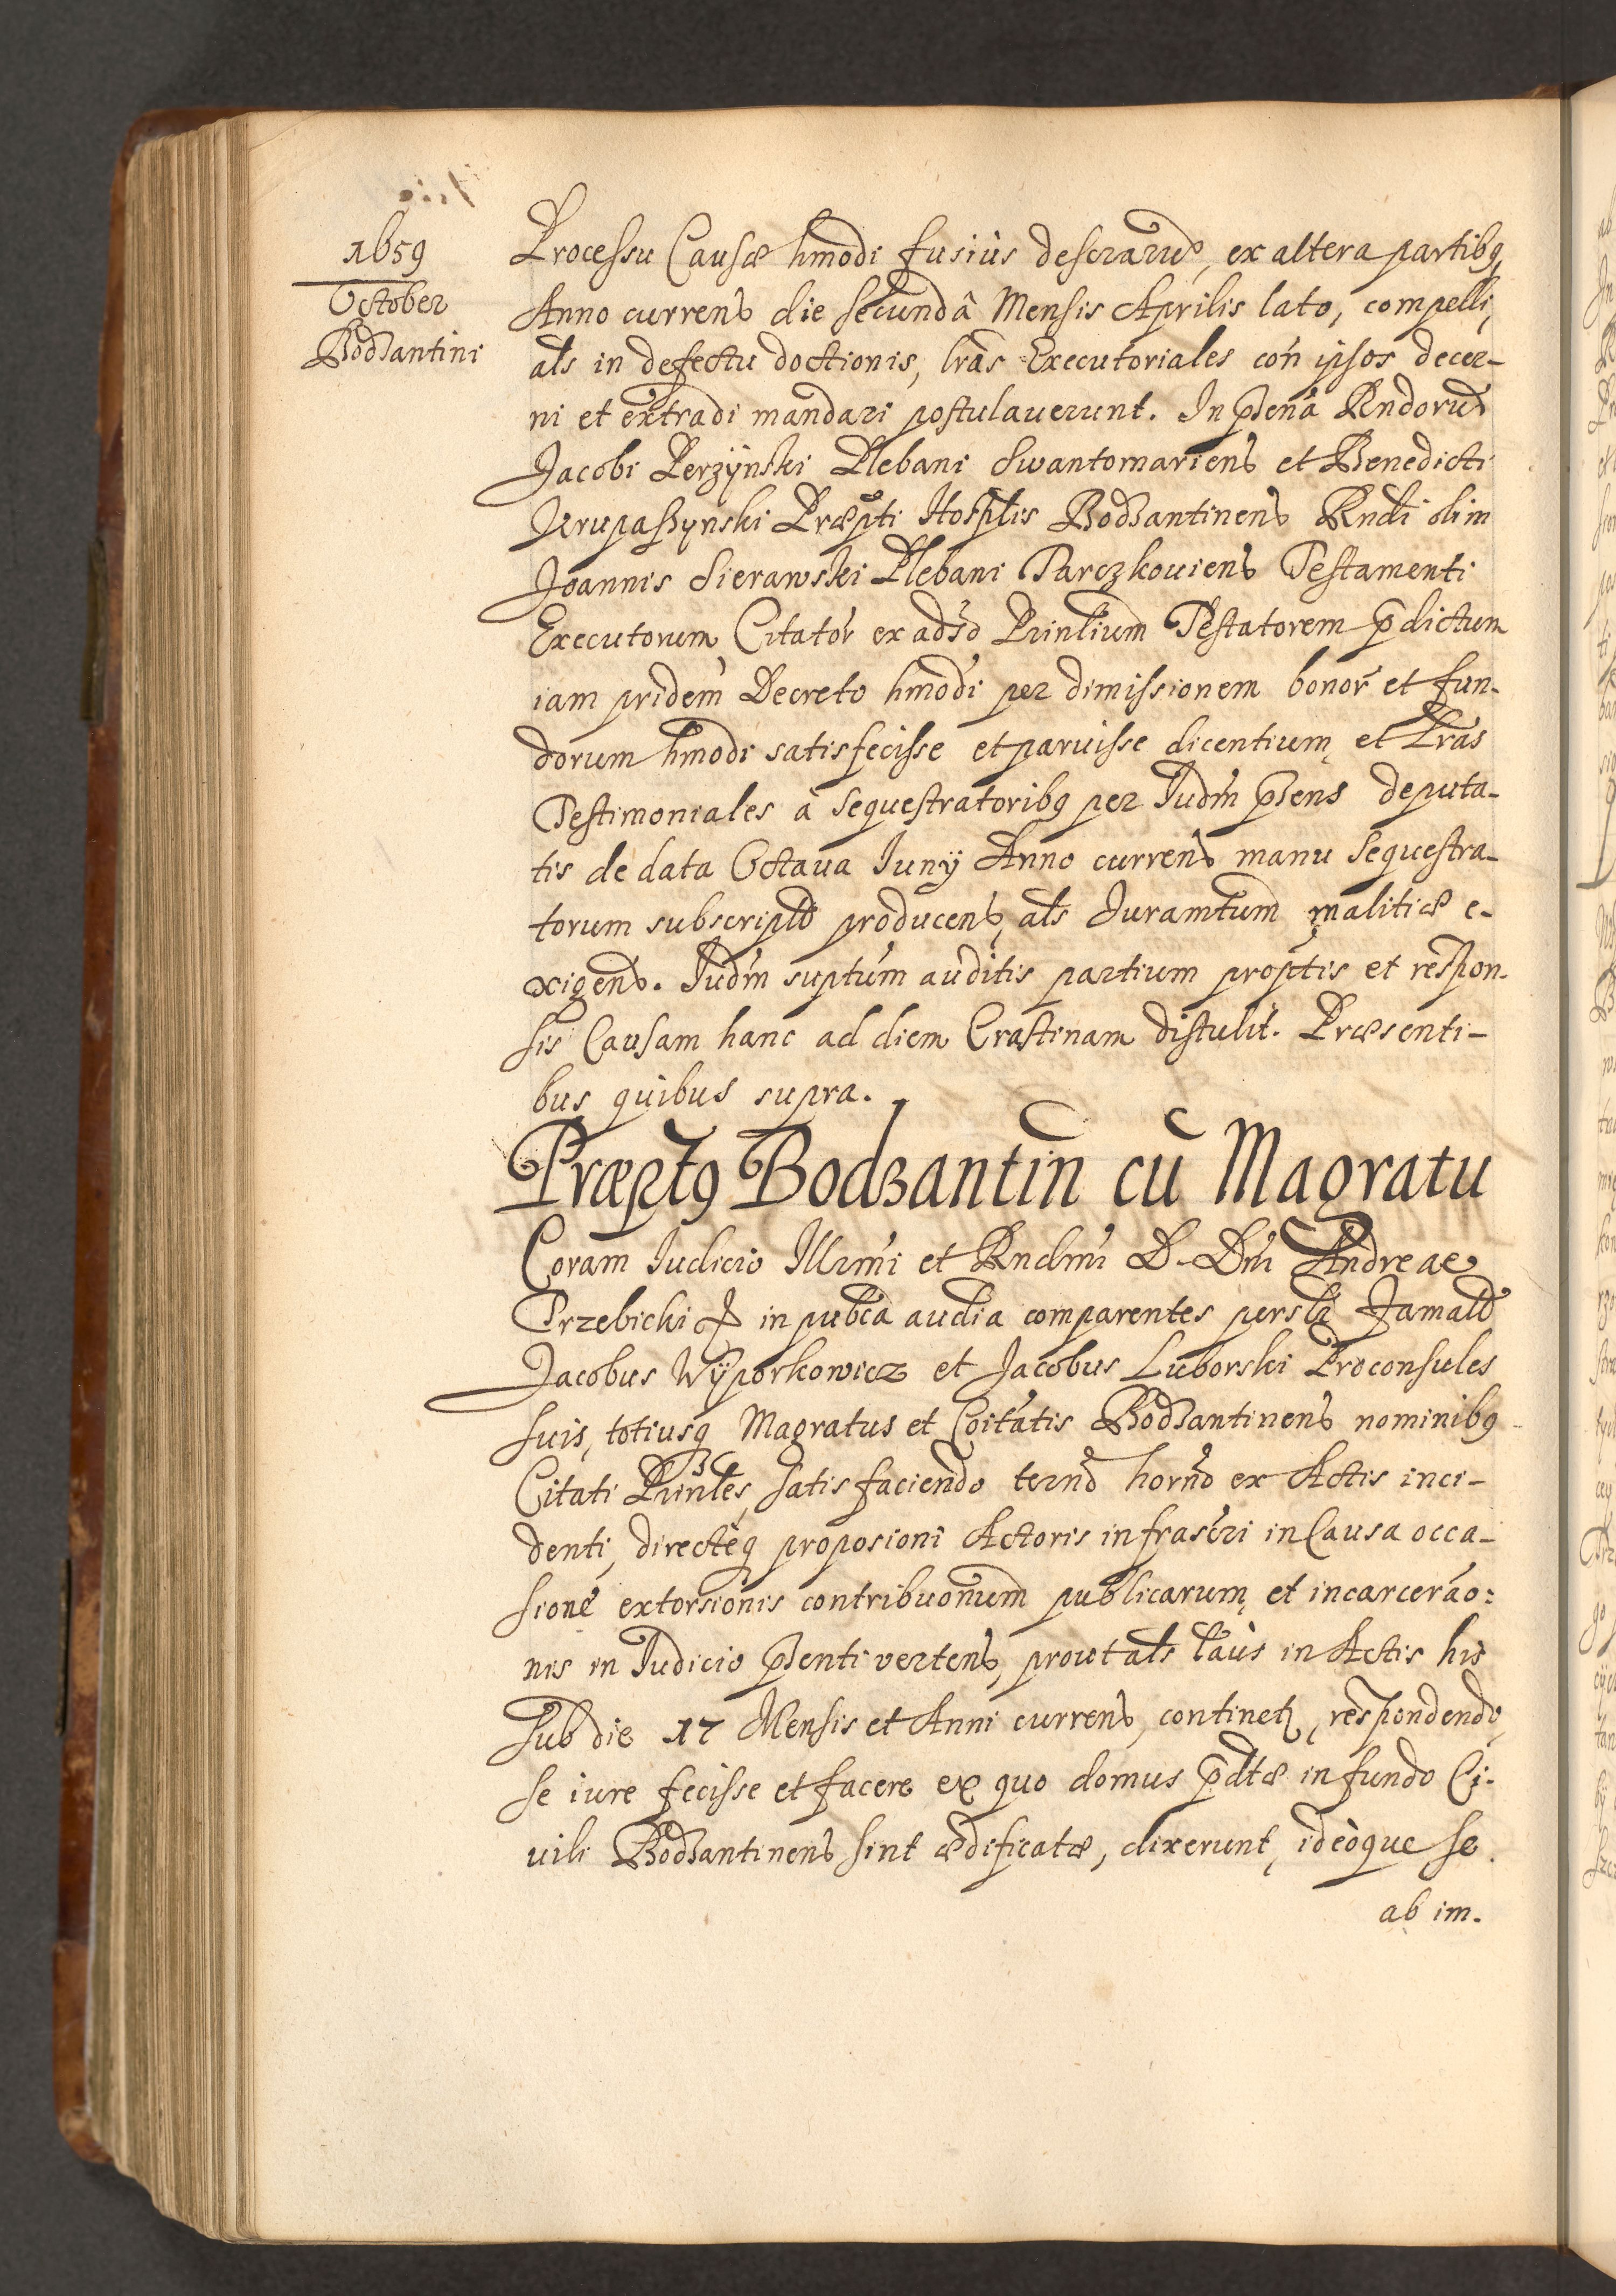 1659
October
Bodzantini
Processu Causæ hmodi fusius descrarũ, ex altera partibq
Anno currens die secundâ Mensis Aprilis lato, compelli,
als in defectu doctionis, lras Executoriales con ipsos decer-
ni et extradi mandari postulaverunt. In pńtia Rndorum
Jacobi Perzÿnski Plebani Swantomariens et Benedicti
Krupaßynski Præpti Hosplis Bodzantinens Rndi olim
Joannis Sierawski Plebani Parczkouiens Testamenti
Executorum Citator ex adso Prinlium Testatorem pdictum
iam pridem Decreto hmodi per dimissionem bonor et fun-
dorum hmodi satisfecisse et paruisse dicentium et Lras
Testimoniales â Sequestratoribq per Judm pńens deputa-
tis de data Octaua Iunÿ Anno currens manu Sequestra-
torum subscriptas producens, als Juramtum malitiæ e-
xigens. Judm suptum auditis partium proptis et respon-
sis Causam hanc ad diem Crastinam distulit. Præsenti-
bus quibus supra.
Præptq Bodzantin cũ Magratu
Coram Iudicio Illrmi et Rndmi D. Dni Andreae
Trzebicki in pubca audia comparentes persłr Famati
Jacobus Wÿporkowicz et Jacobus Luborski Proconsules
suis, totiusq Magratus et Coitatis Bodzantinens nominibq
Citati Prinles, satisfaciendo termo horno ex Actis inci-
denti, directeq proposioni Actoris infrascri in Causa occa-
sione extorsionis contribuonum publicarum et incarcerao:
nis in Judicio pńenti vertens, prout als laus in Actis his
sub die 17 Mensis et Anni currens, continetr, respondendo,
se iure fecisse et facere ex quo domus pdtæ in fundo Ci-
uili Bodzantinens sint ædificatæ, dixerunt, ideòque se
ab im.